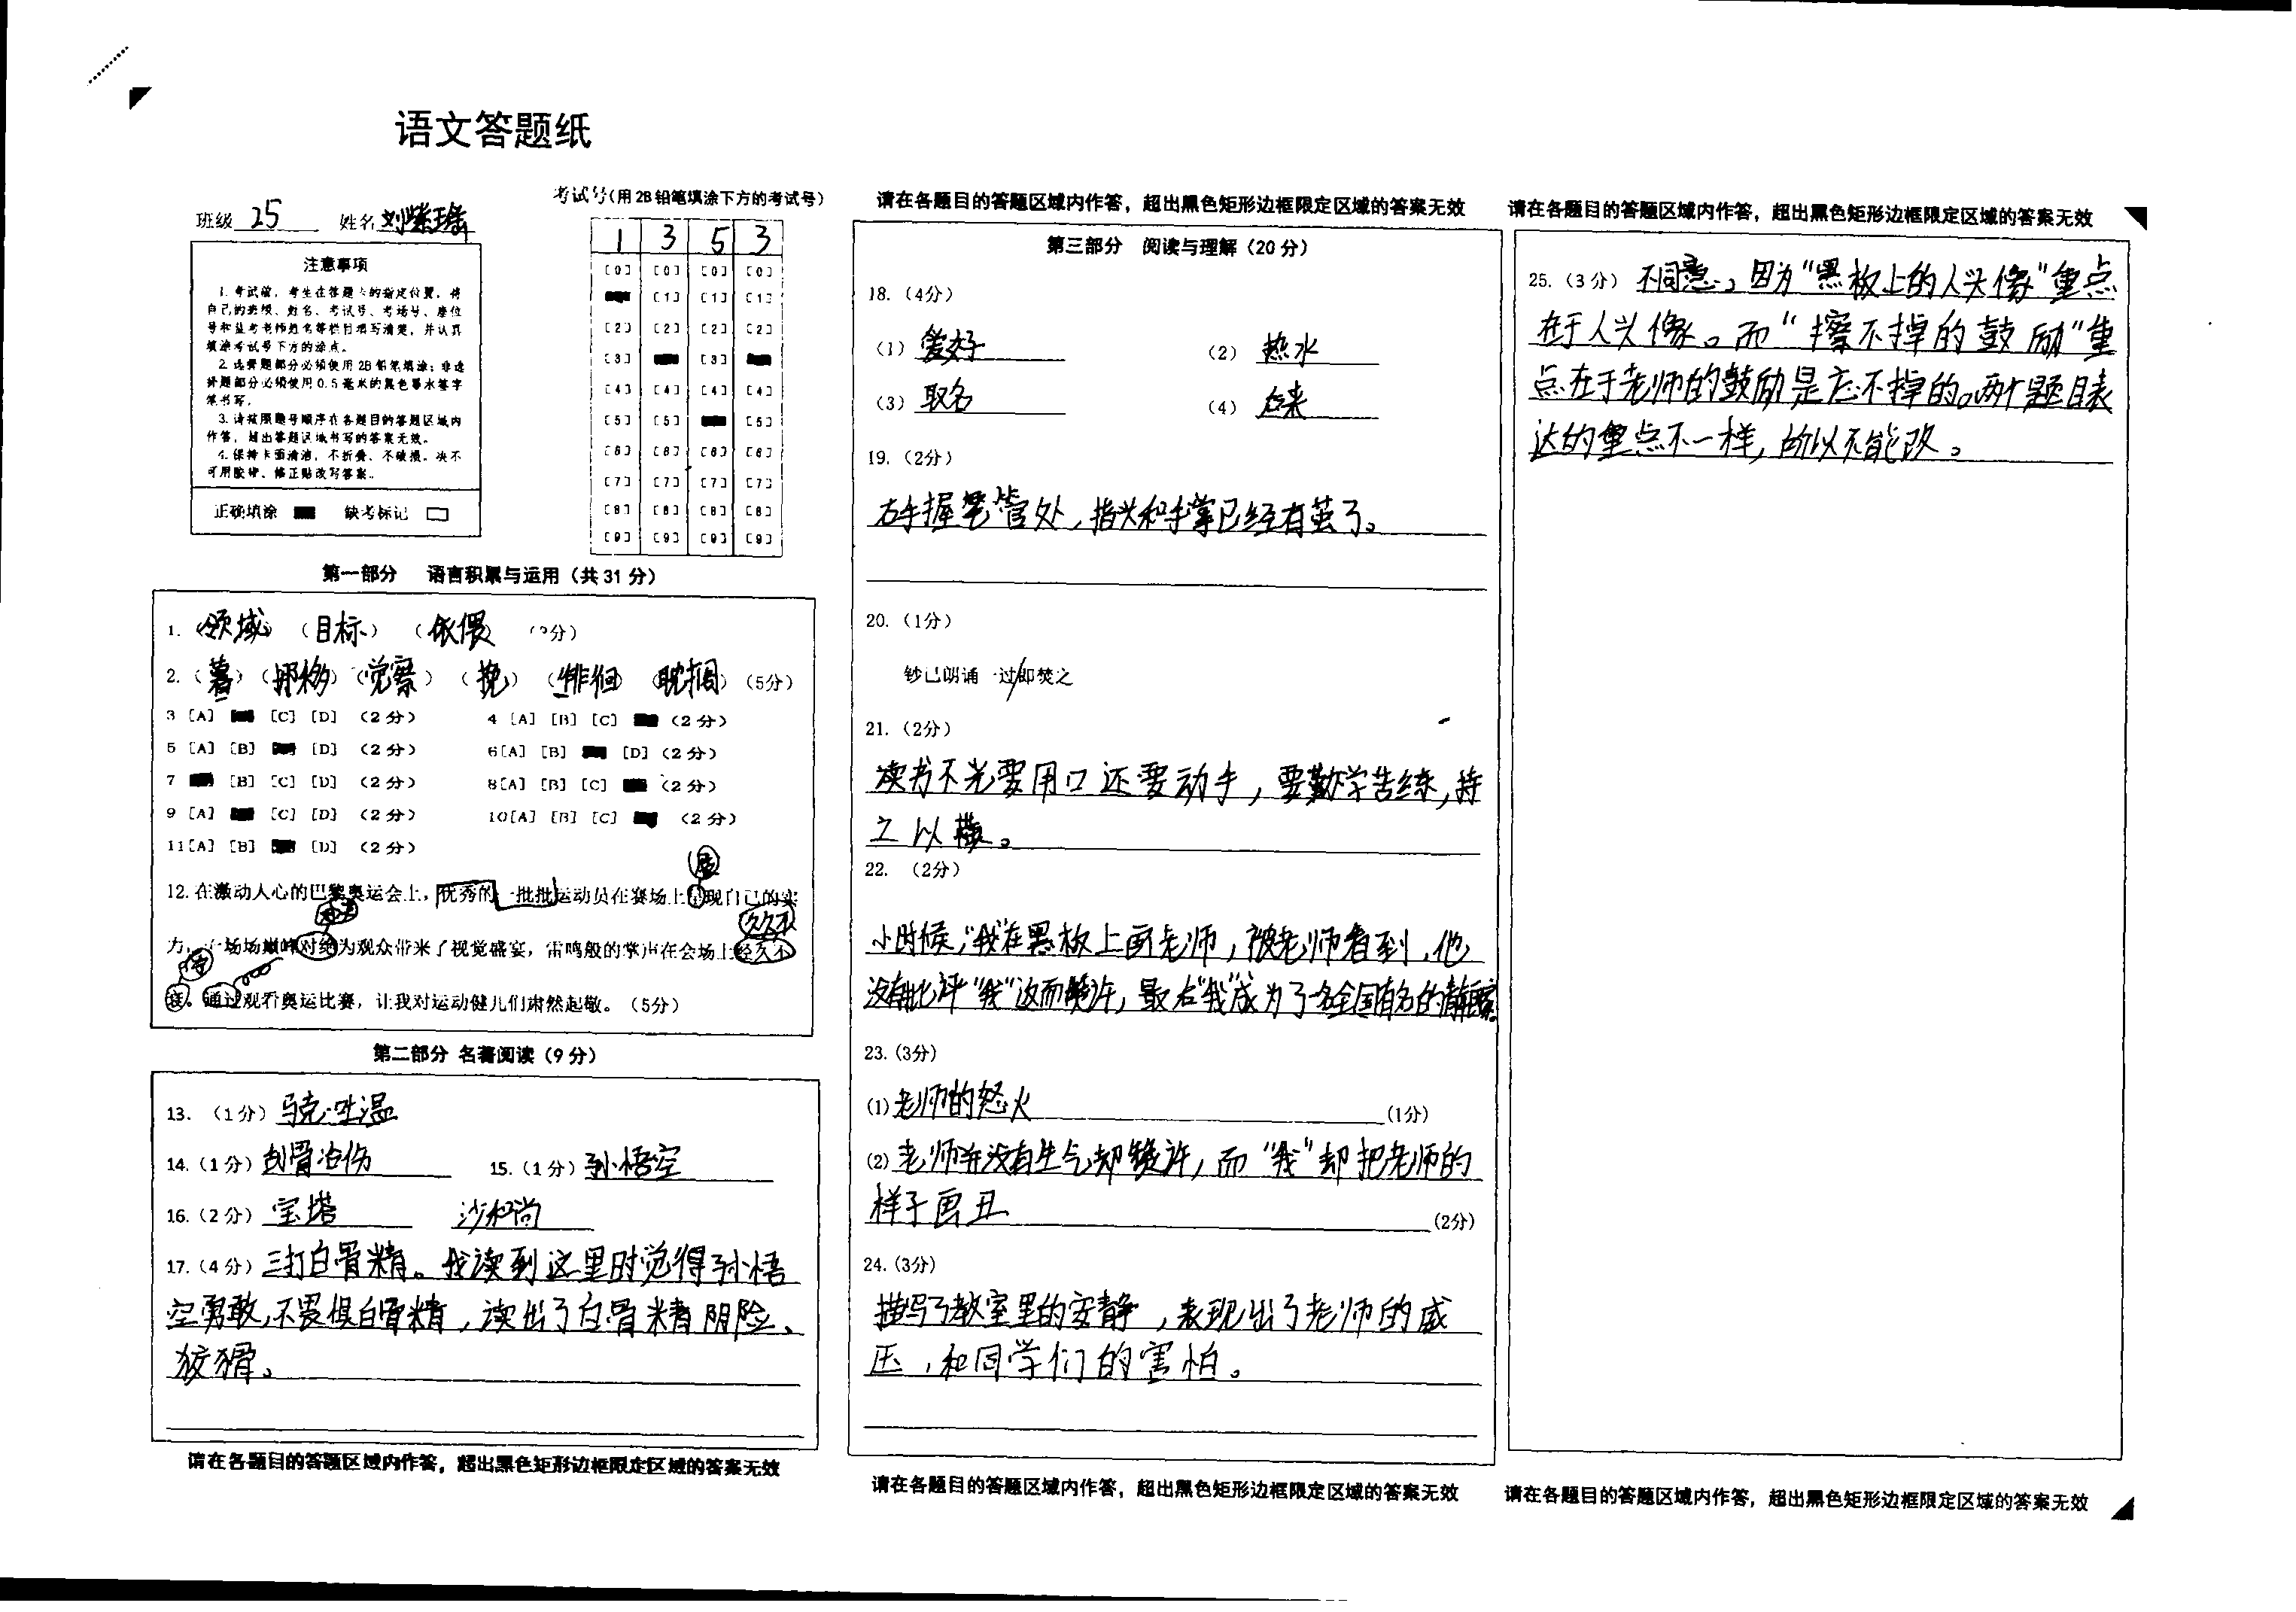 语文答题纸
班级 25 姓名 刘紫瑶
考试号(用2B铅笔填涂下方的考试号)
1 3 5 3
[0] [0] [0] [0]
[1] [1] [1]
[2] [2] [2] [2]
[3] [3]
[4] [4] [4] [4]
[5] [5] [5]
[6] [6] [6] [6]
[7] [7] [7] [7]
[8] [8] [8] [8]
[9] [9] [9] [9]
注意事项
1. 考试前,考生在答题卡的指定位置,将
自己的班级、姓名、考试号、考场号、座位
号和监考老师姓名等栏目填写清楚,并认真
填涂考试号下方的涂点。
2. 选择题部分必须使用2B铅笔填涂;非选
择题部分必须使用0.5毫米的黑色墨水签字
笔书写。
3. 请按照题号顺序在各题目的答题区域内
作答,超出答题区域书写的答案无效。
4. 保持卡面清洁,不折叠、不破损。决不
可用胶带、修正贴改写答案。
正确填涂 缺考标记
第一部分 语言积累与运用(共31分)
1. (领域) (目标) (依偎) (3分)
2. (暮) (挪移) (觉察) (挽) (徘徊) (耽搁) (5分)
3 [A] [C] [D] (2分) 4 [A] [B] [C] (2分)
5 [A] [B] [D] (2分) 6[A] [B] [D] (2分)
7 [B] [C] [D] (2分) 8[A] [B] [C] (2分)
9 [A] [C] [D] (2分) 10[A] [B] [C] (2分)
11[A] [B] [D] (2分)
展
12. 在激动人心的巴黎奥运会上,优秀的一批批运动员在赛场上呈现自己的实
久久不
力,一场场巅峰对绝为观众带来了视觉盛宴,雷鸣般的掌声在会场上经久不
。通过观看奥运比赛,让我对运动健儿们肃然起敬。(5分)
第二部分 名著阅读(9分)
13. (1分) 马克·吐温
14. (1分) 刮骨治伤 15. (1分) 孙悟空
16. (2分) 宝塔 沙和尚
17. (4分) 三打白骨精。我读到这里时觉得孙悟
空勇敢,不畏惧白骨精,读出了白骨精阴险、
狡猾。
请在各题目的答题区域内作答,超出黑色矩形边框限定区域的答案无效
请在各题目的答题区域内作答,超出黑色矩形边框限定区域的答案无效
第三部分 阅读与理解(20分)
18. (4分)
(1) 爱好 (2) 热水
(3) 取名 (4) 后来
19. (2分)
右手握笔管处,指头和手掌已经有茧了。
20. (1分)
钞已朗诵一过/即焚之
21. (2分)
读书不光要用口还要动手,要勤学苦练,持
之以横。
22. (2分)
小时候,“我”在黑板上画老师,被老师看到,他
没有批评“我”这而赞许,最后“我”成为了一名全国有名的
23. (3分)
(1) 老师的怒火 (1分)
(2) 老师并没有生气却赞许,而“我”却把老师的
样子画丑 (2分)
24. (3分)
描写了教室里的安静,表现出了老师的威
压,和同学们的害怕。
请在各题目的答题区域内作答,超出黑色矩形边框限定区域的答案无效
请在各题目的答题区域内作答,超出黑色矩形边框限定区域的答案无效
25. (3分) 不同意。因为“黑板上的人头像”重点
在于人头像。而“擦不掉的鼓励”重
点在于老师的鼓励是忘不掉的。两个题目表
达的重点不一样,所以不能改。
请在各题目的答题区域内作答,超出黑色矩形边框限定区域的答案无效